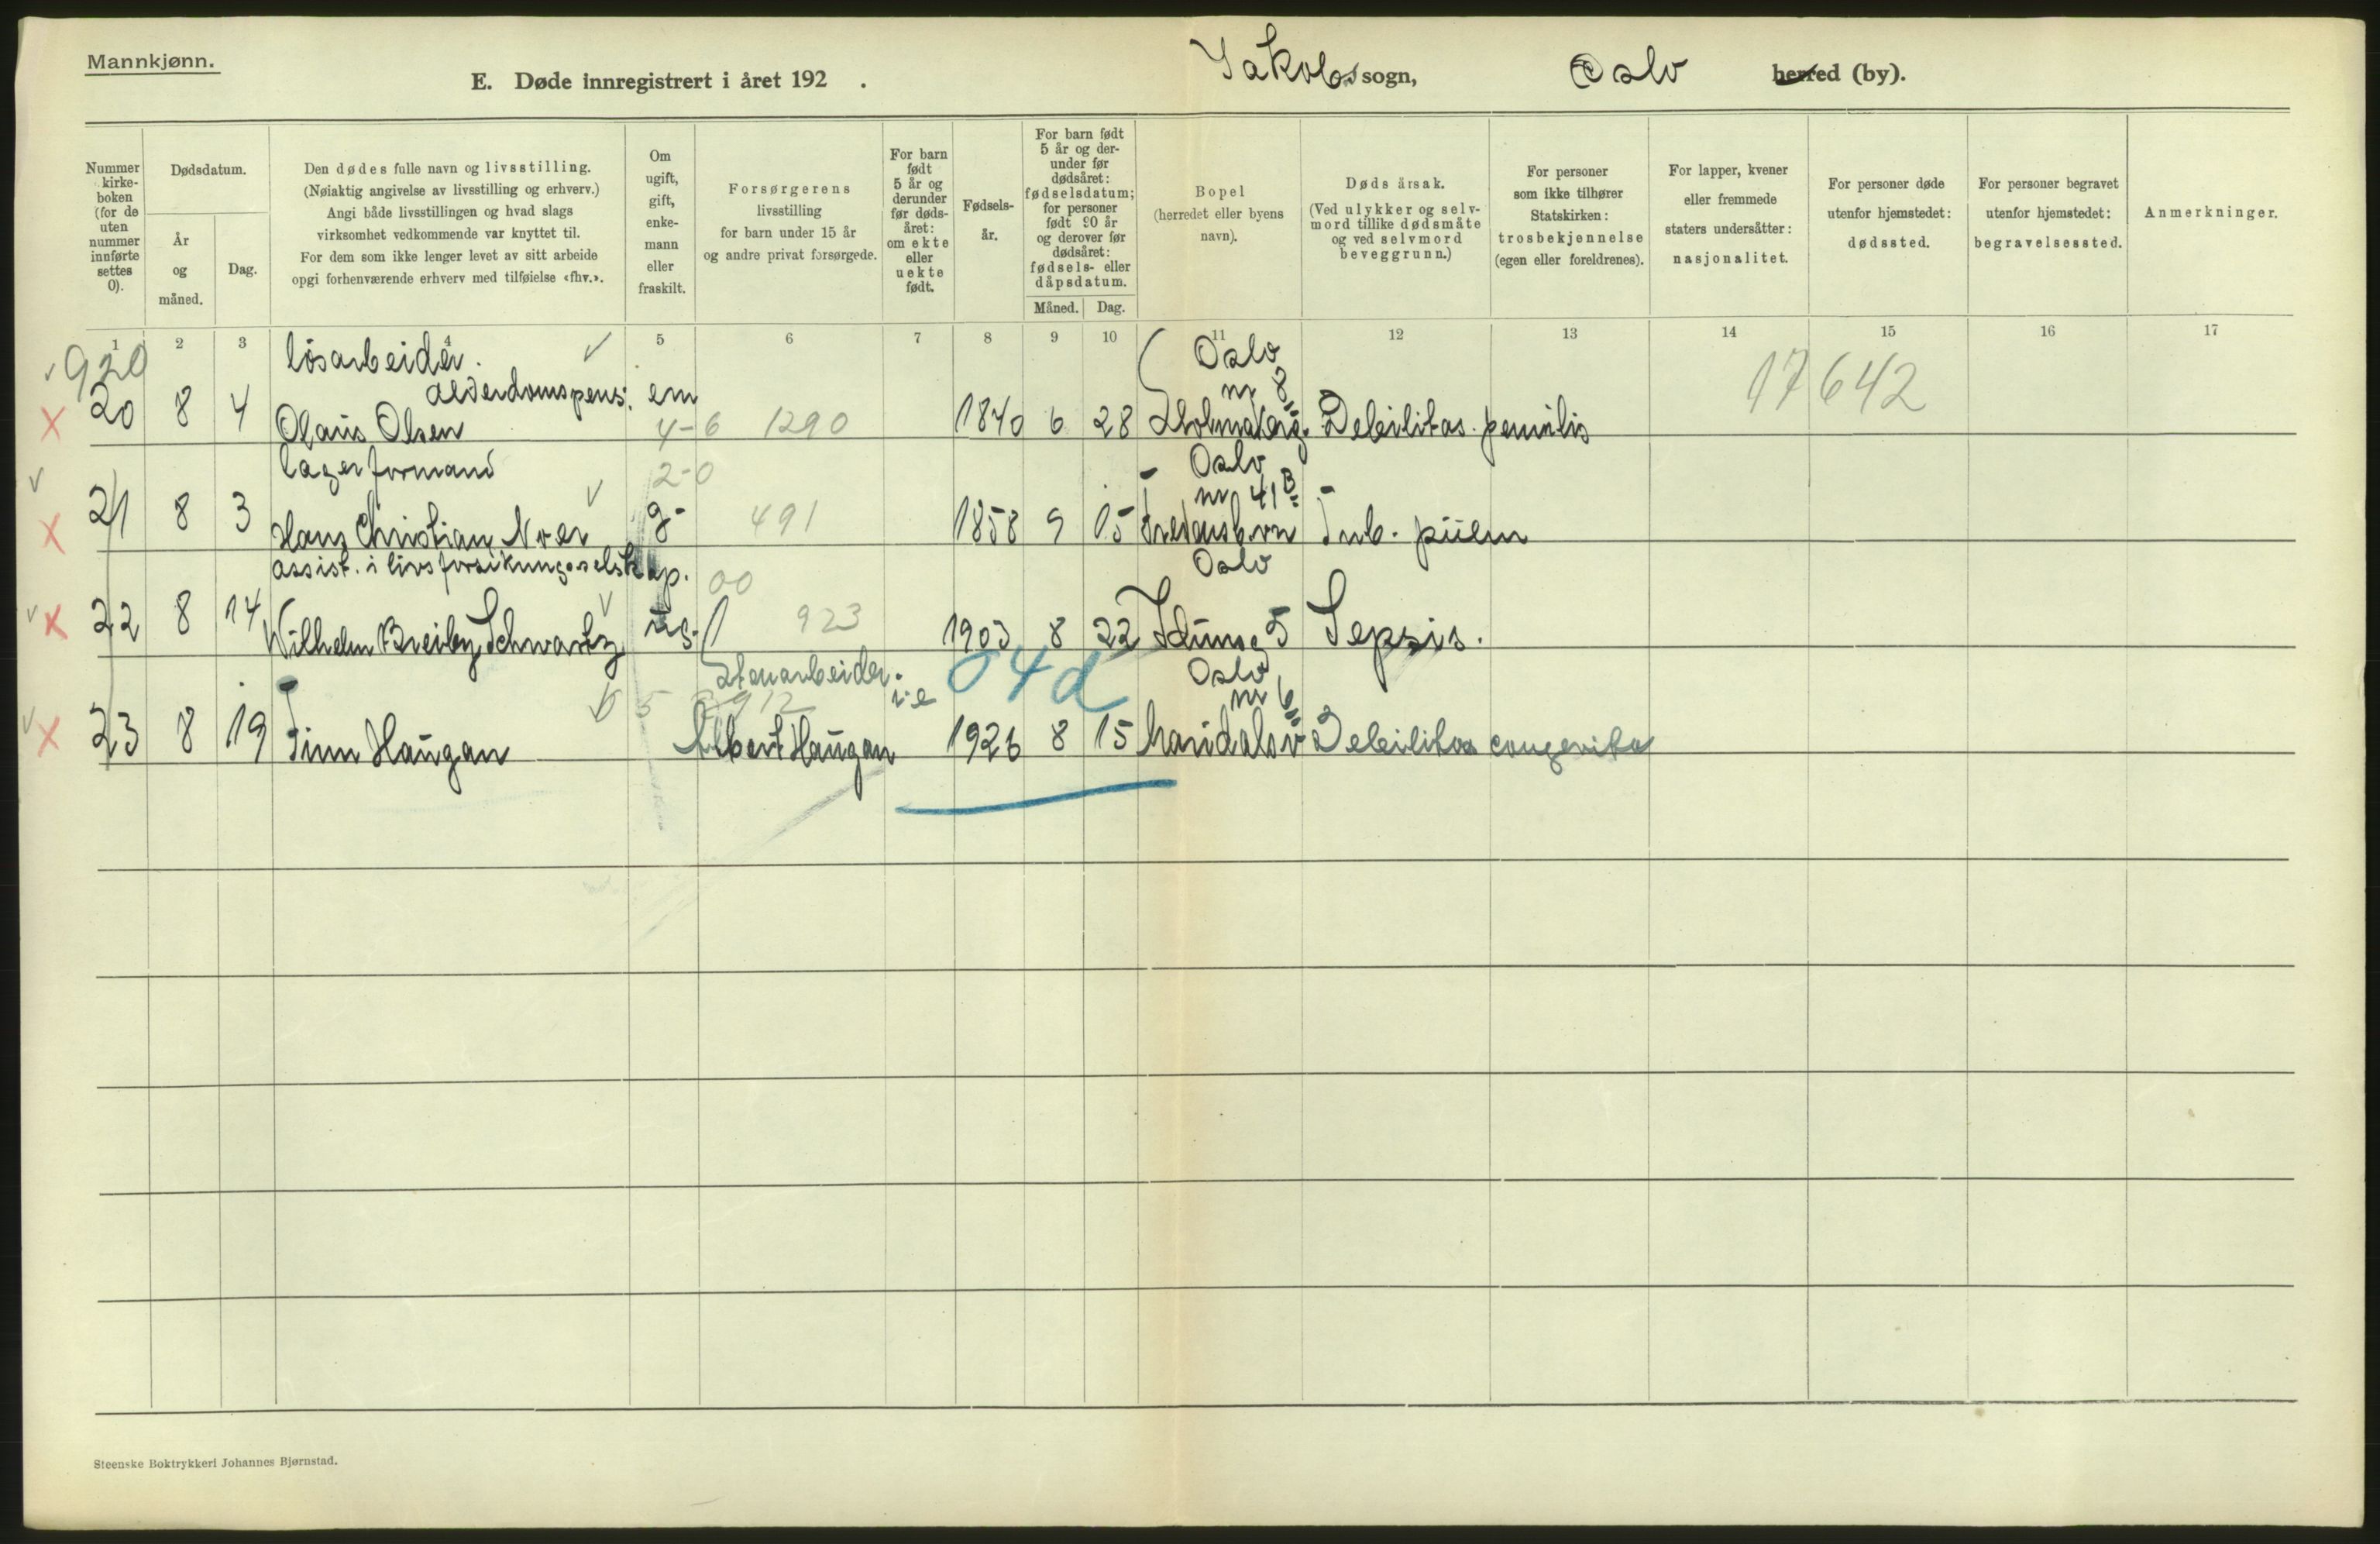 Mannkjønn.
E. Døde innregistrert i året 192 .
Jakobs sogn,
Oslo
herred (by).
Nummer kirke-
boken
(for de
uten
nummer
innførte
settes
0).
Dødsdatum.
År
og
måned.
Dag.
Den dødes fulle navn og livsstilling.
(Nøiaktig angivelse av livsstilling og erhverv.)
Angi både livsstillingen og hvad slags
virksomhet vedkommende var knyttet til.
For dem som ikke lenger levet av sitt arbeide
opgi forhenværende erhverv med tilføielse «fhv.».
Om
ugift,
gift,
enke-
mann
eller
fraskilt.
Forsørgerens
livsstilling
for barn under 15 år
og andre privat forsørgede.
For barn
født
5 år og
derunder
før døds-
året:
om ekte
eller
uekte
født.
Fødsels-
år.
For barn født
5 år og der-
under før
dødsåret:
fødselsdatum;
for personer
født 90 år
og derover før
dødsåret:
fødsels- eller
dåpsdatum.
Måned.
Dag.
Bopel
(herredet eller byens
navn).
Døds årsak.
(Ved ulykker og selv-
mord tillike dødsmåte
og ved selvmord
beveggrunn.)
For personer
som ikke tilhører
Statskirken:
trosbekjennelse
(egen eller foreldrenes).
For lapper, kvener
eller fremmede
staters undersåtter:
nasjonalitet.
For personer døde
utenfor hjemstedet:
dødssted.
For personer begravet
utenfor hjemstedet:
begravelsessted.
Anmerkninger.
1 2 3 4 5 6 7 8 9 10 11 12 13 14 15 16 17
920
løsarbeider.
alderdomspens.
Oslo
nr 8
17642
20 8 4 Olaus Olsen em 4-6 1290 1840 6 28 Debilitas senilis
lagerformand
2-0
Oslo
nr 41B
21 8 3 Hans Christian Noer g. 491 1858 9 15 Tub. pulm
assist. i livsforsikringsselskap.
00
Oslo
22 8 14 Wilhelm Breiby Schwartz ug. 923 1903 8 22 Iduns g 5 Sepsis.
Stenarbeider.
i e
04d
Oslo
nr 6
23 8 19 Finn Haugan Albert Haugan 1926 8 15 Maridalsv Debilitas congenita
Steenske Boktrykkeri Johannes Bjørnstad.